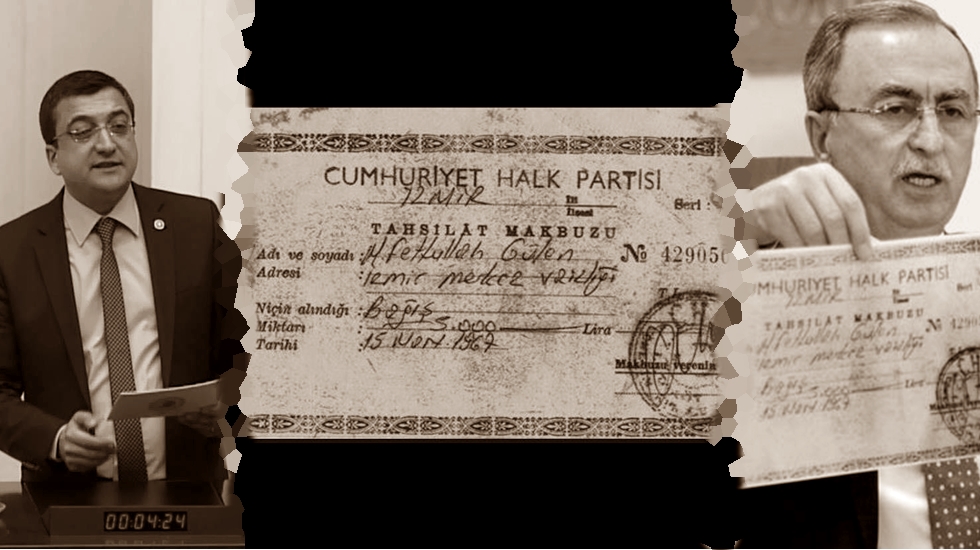 00:04:24
CUMHURİYET HALK PARTİSİ
İZMİR İli Seri :
İlçesi
TAHSİLÂT MAKBUZU
Adı ve soyadı : M. Fethullah Gülen № 42905
Adresi : İzmir merkez vaizliği
Niçin alındığı : Bağış
Miktarı : 5.000 Lira
Tarihi : 15 1967
Makbuzu verenin
MHURİYET HALK PARTİSİ
İZMİR
TAHSİLÂT MAKBUZU
M. Fethullah Gülen № 429
İzmir merkez vaizliği
Bağış
5.000 Lira
15 1967